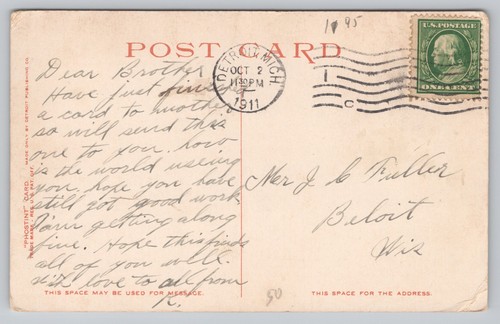 1 95
POST CARD
DETROIT, MICH.
OCT 2
1911
ONE CENT
Dear Brother
Have just
a card to mother
so will send this
one to you. how
is the world useing
you. hope you have
still got good work
I am getting along
fine. Hope this finds
all of you well.
with love to all from
R.
Mr J C Fuller
Beloit
Wis
"PHOSTINT" CARD
MADE ONLY BY DETROIT PUBLISHING CO.
THIS SPACE MAY BE USED FOR MESSAGE.
THIS SPACE IS FOR THE ADDRESS.